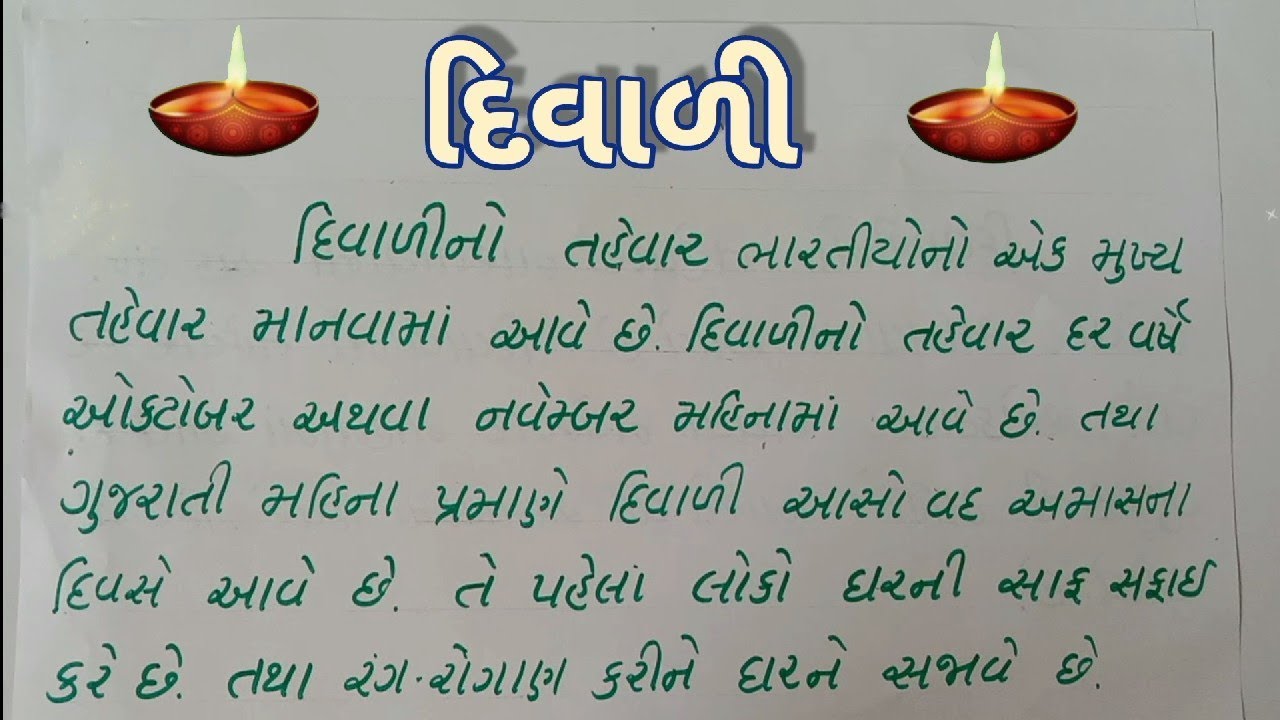 દિવાળી
દિવાળીનો તહેવાર ભારતીયોનો એક મુખ્ય
તહેવાર માનવામાં આવે છે. દિવાળીનો તહેવાર દર વર્ષે
ઓક્ટોબર અથવા નવેમ્બર મહિનામાં આવે છે. તથા
ગુજરાતી મહિના પ્રમાણે દિવાળી આસો વદ અમાસના
દિવસે આવે છે. તે પહેલાં લોકો ઘરની સાફ સફાઇ
કરે છે. તથા રંગ-રોગાણ કરીને ઘરને સજાવે છે.